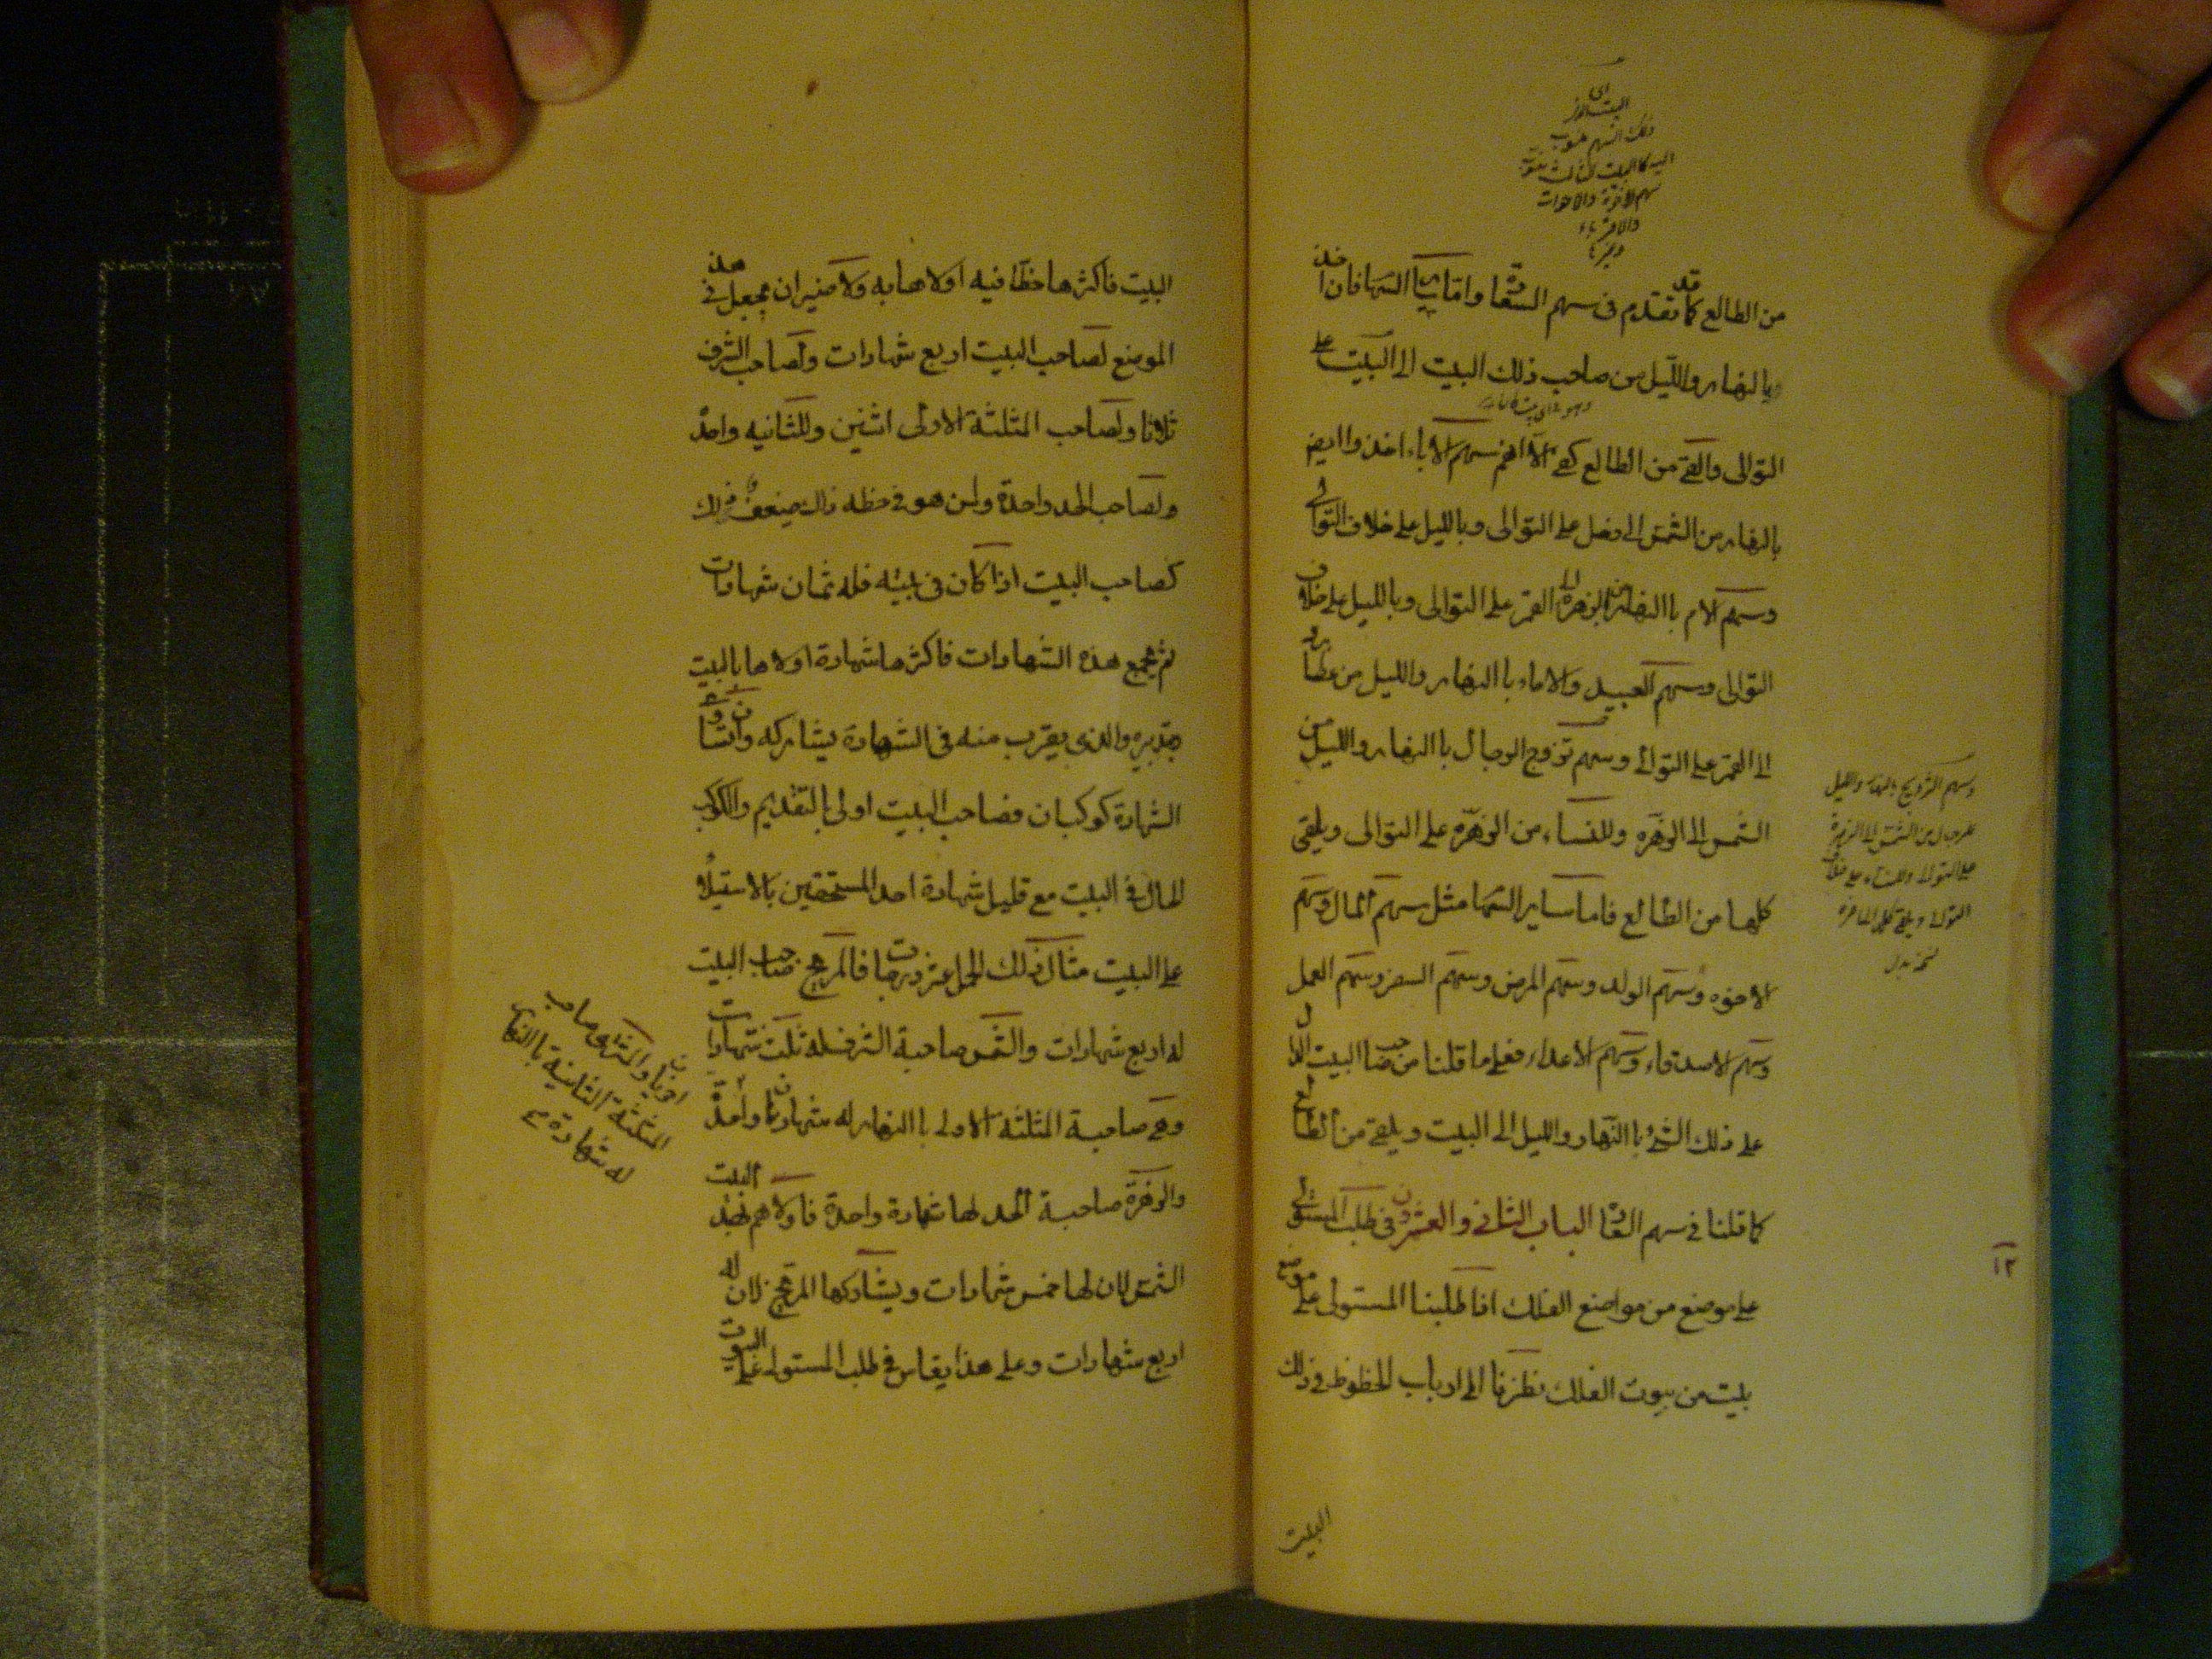 من الطالع كما قد تقدم فى سهم السعادة واما باقى السهام فان اخذ
بالنهار والليل من صاحب ذلك البيت الى البيت على
التوالى والقى من الطالع كفى الا انهم سهم الاباء اخذوا ايض
بالنهار من الشمس الى زحل على التوالى وبالليل على خلاف التوالى
وسهم الام باالنهار من الزهرة الى القمر على التوالى وبالليل على خلاف
التوالى وسهم العبيد والاماء باالنهار والليل من عطارد
الى القمر على التوالى وسهم تزوج الرجال باالنهار والليل من
الشمس الى الزهره وللنساء من الزهره على التوالى ويلقى
كلها من الطالع فاما ساير السهام مثل سهم المال وسهم
الاخوه وسهم الولد وسهم المرض وسهم السفر وسهم العمل
وسهم الاصدقاء وسهم الاعداء فعلى ما قلنا من صاحب البيت الدال
على ذلك الشئ باالنهار والليل الى البيت ويلقى من الطالع
كما قلنا فى سهم السعادة الباب الثانى والعشرون فى طلب المستولى
على موضع من مواضع الفلك اذا طلبنا المستولى على موضع
بيت من بيوت الفلك نظرنا الى ارباب الحظوظ فى ذلك
البيت
اى
ذلك السهم منسوب
اليه كالبيت الثالث
سهم الاخوة والاخوات
والاقرباء
وغيرها
وسهم التزويج بالنهار والليل
للرجال من الشمس الى الزهرة
على التوالى وللنساء على خلاف
التوالى ويلقى كلها
نسخه بدل
١٢
البيت فاكثرها حظا فيه اولاها به ولا ضير ان يجعل فى هذا
الموضع لصاحب البيت اربع شهادات ولصاحب الشرف
ثلاثا ولصاحب المثلثة الاولى اثنين وللثانيه واحدة
ولصاحب الحد واحدة ولمن هو فى حظه ذلك ضعف ذلك
كصاحب البيت اذا كان فى بيته فله ثمان شهادات
ثم يجمع هذه الشهادات فاكثرها شهادة اولاها بالبيت
بتدبيره والذى يقرب منه فى الشهادة يشاركه وان تساوى فى
الشهادة كوكبان فصاحب البيت اولى بالتقديم والكوكب
الحال فى البيت مع قليل شهادة احد المستحقين بالاستيلاء
على البيت مثال ذلك الحمل عشر درجات فالمريخ صاحب البيت
له اربع شهادات والشمس صاحبة الشرف فله ثلث شهادات
وهى صاحبة المثلثة الاولى باالنهار له شهادتان واحدة
والزهرة صاحبة الحد لها شهادة واحدة فاولاهم بهذا البيت
الشمس لان لها خمس شهادات ويشاركها المريخ لان له
اربع شهادات وعلى هذا يقاس فى طلب المستولى على البيوت
اخريان والمشترى صاحب
المثلثة الثانية باالنهار
له شهادة